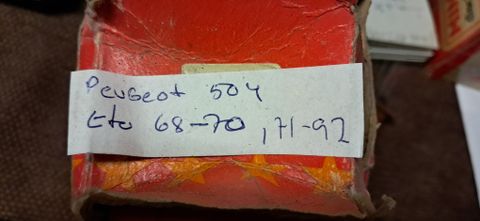 Peugeot 504
Eto 68-70, 71-92